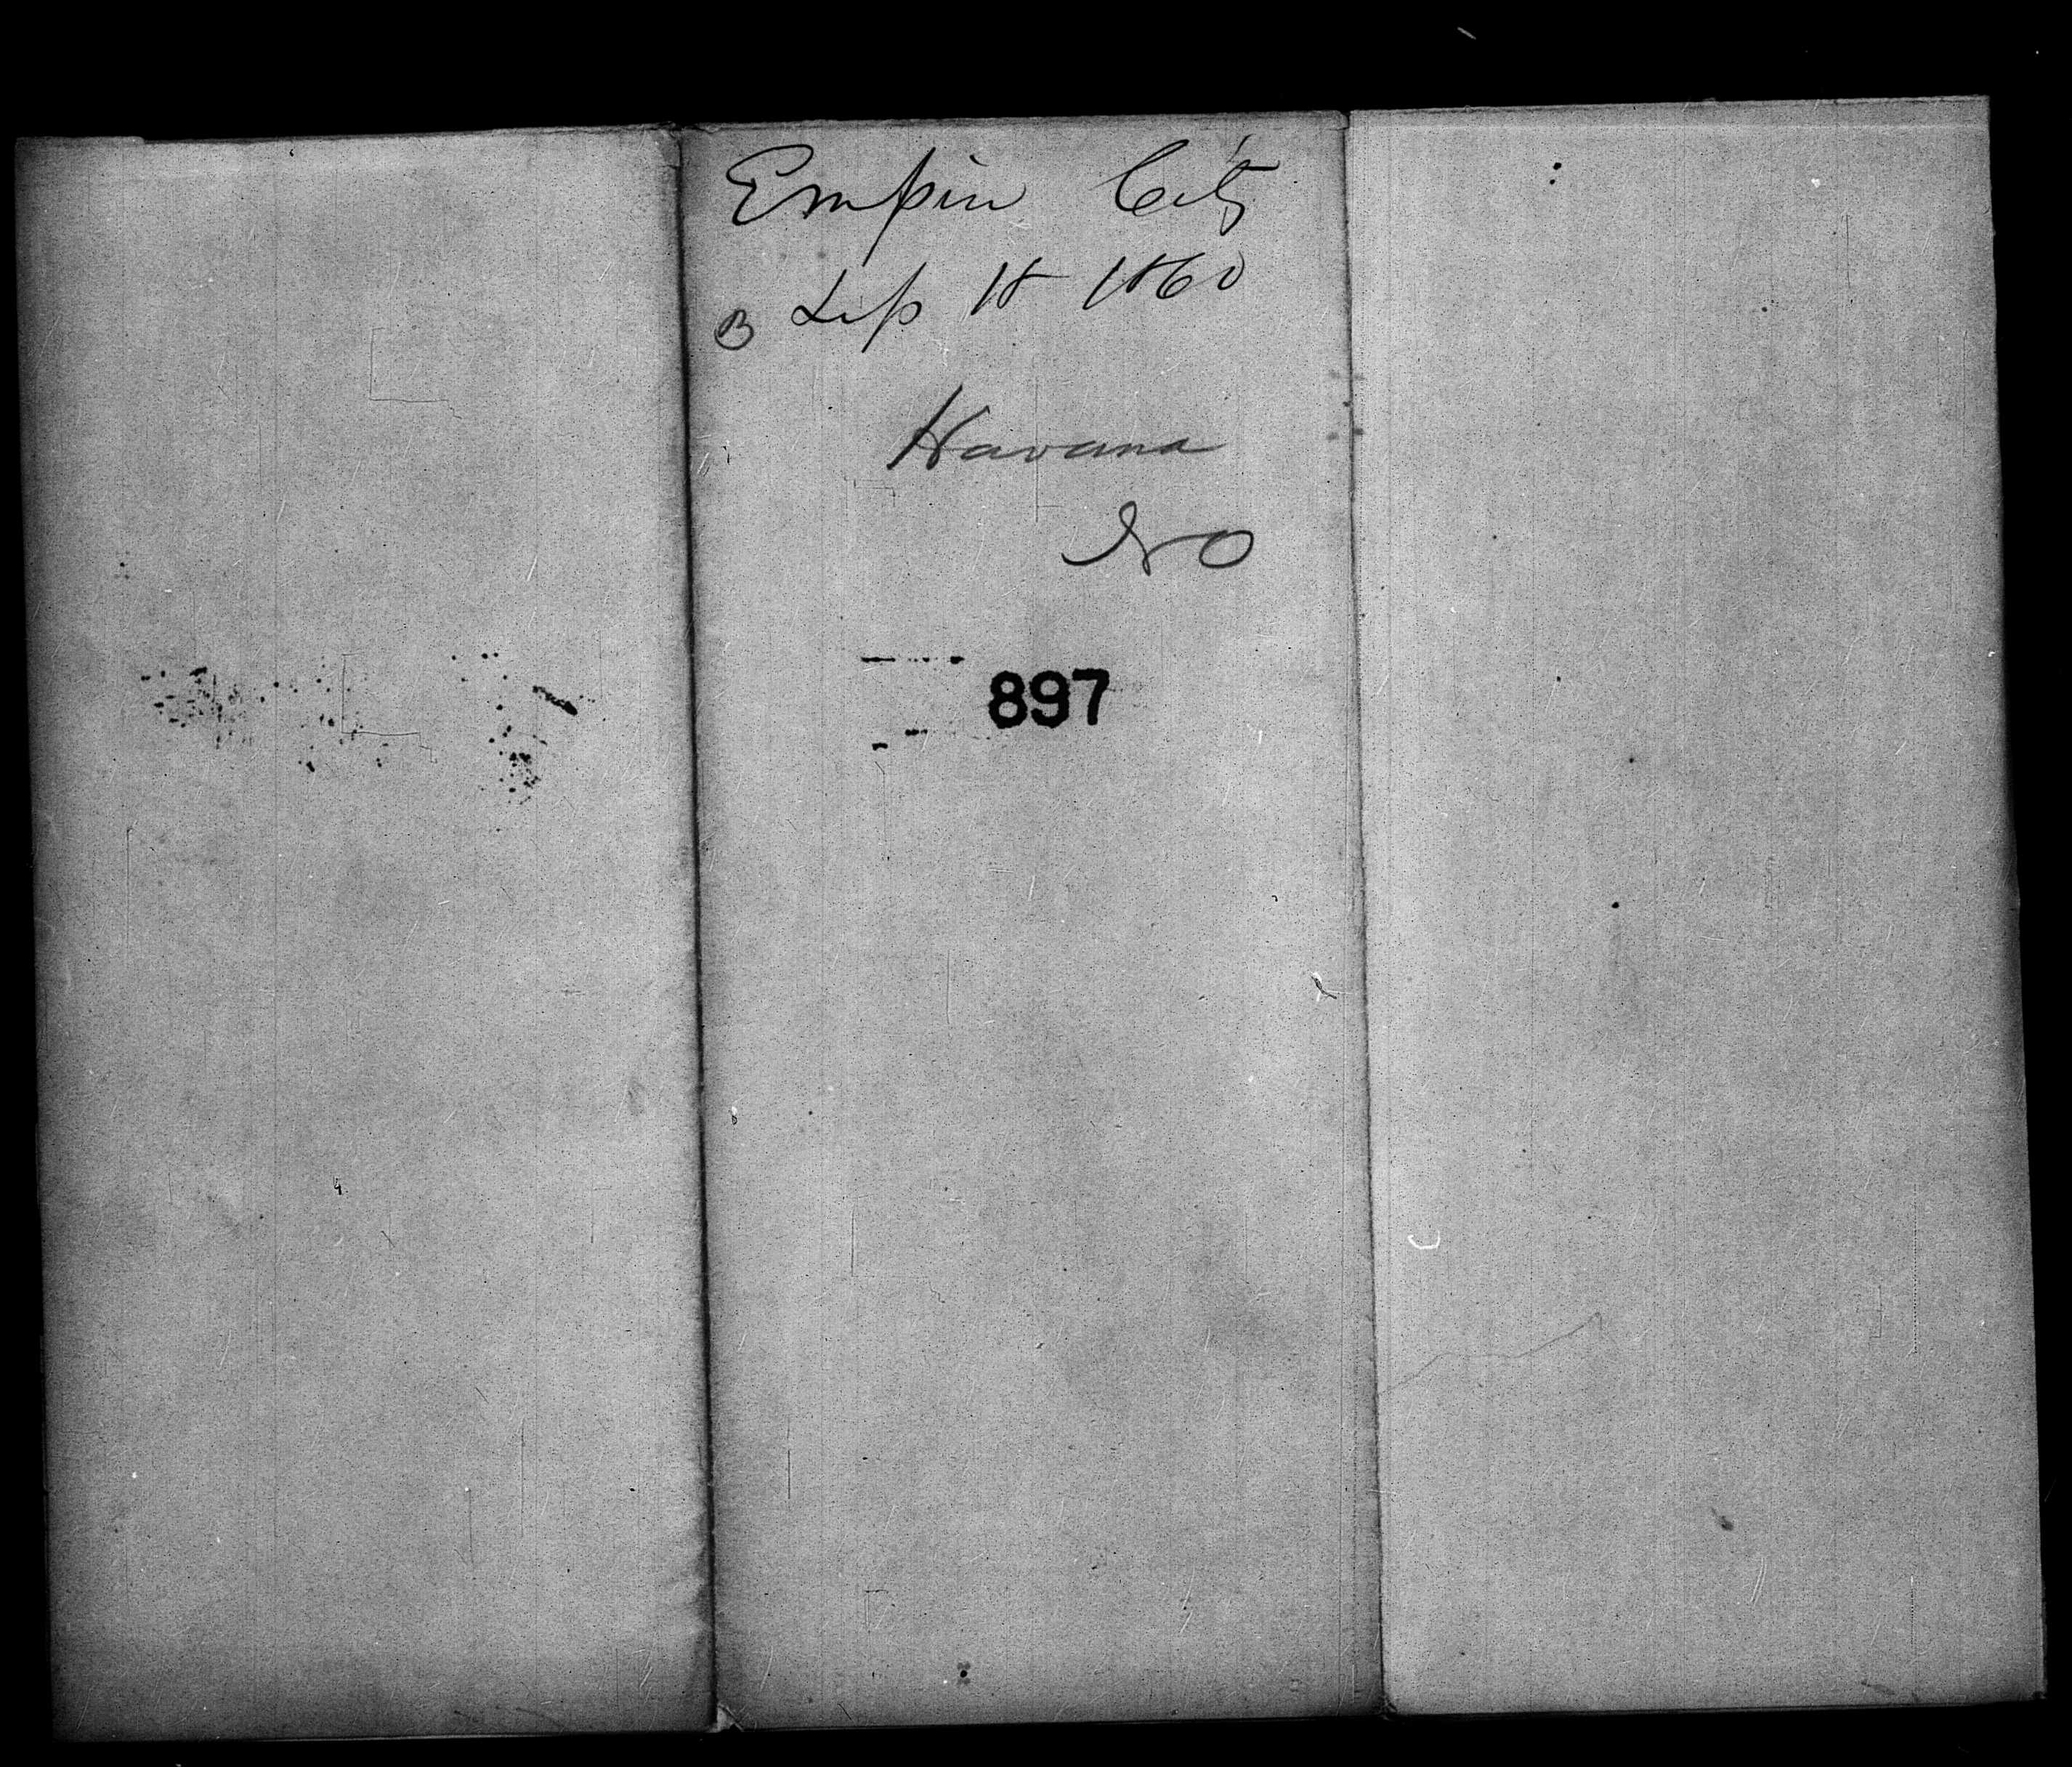 Empire City
B Sep 18 1860
Havana
NO
897